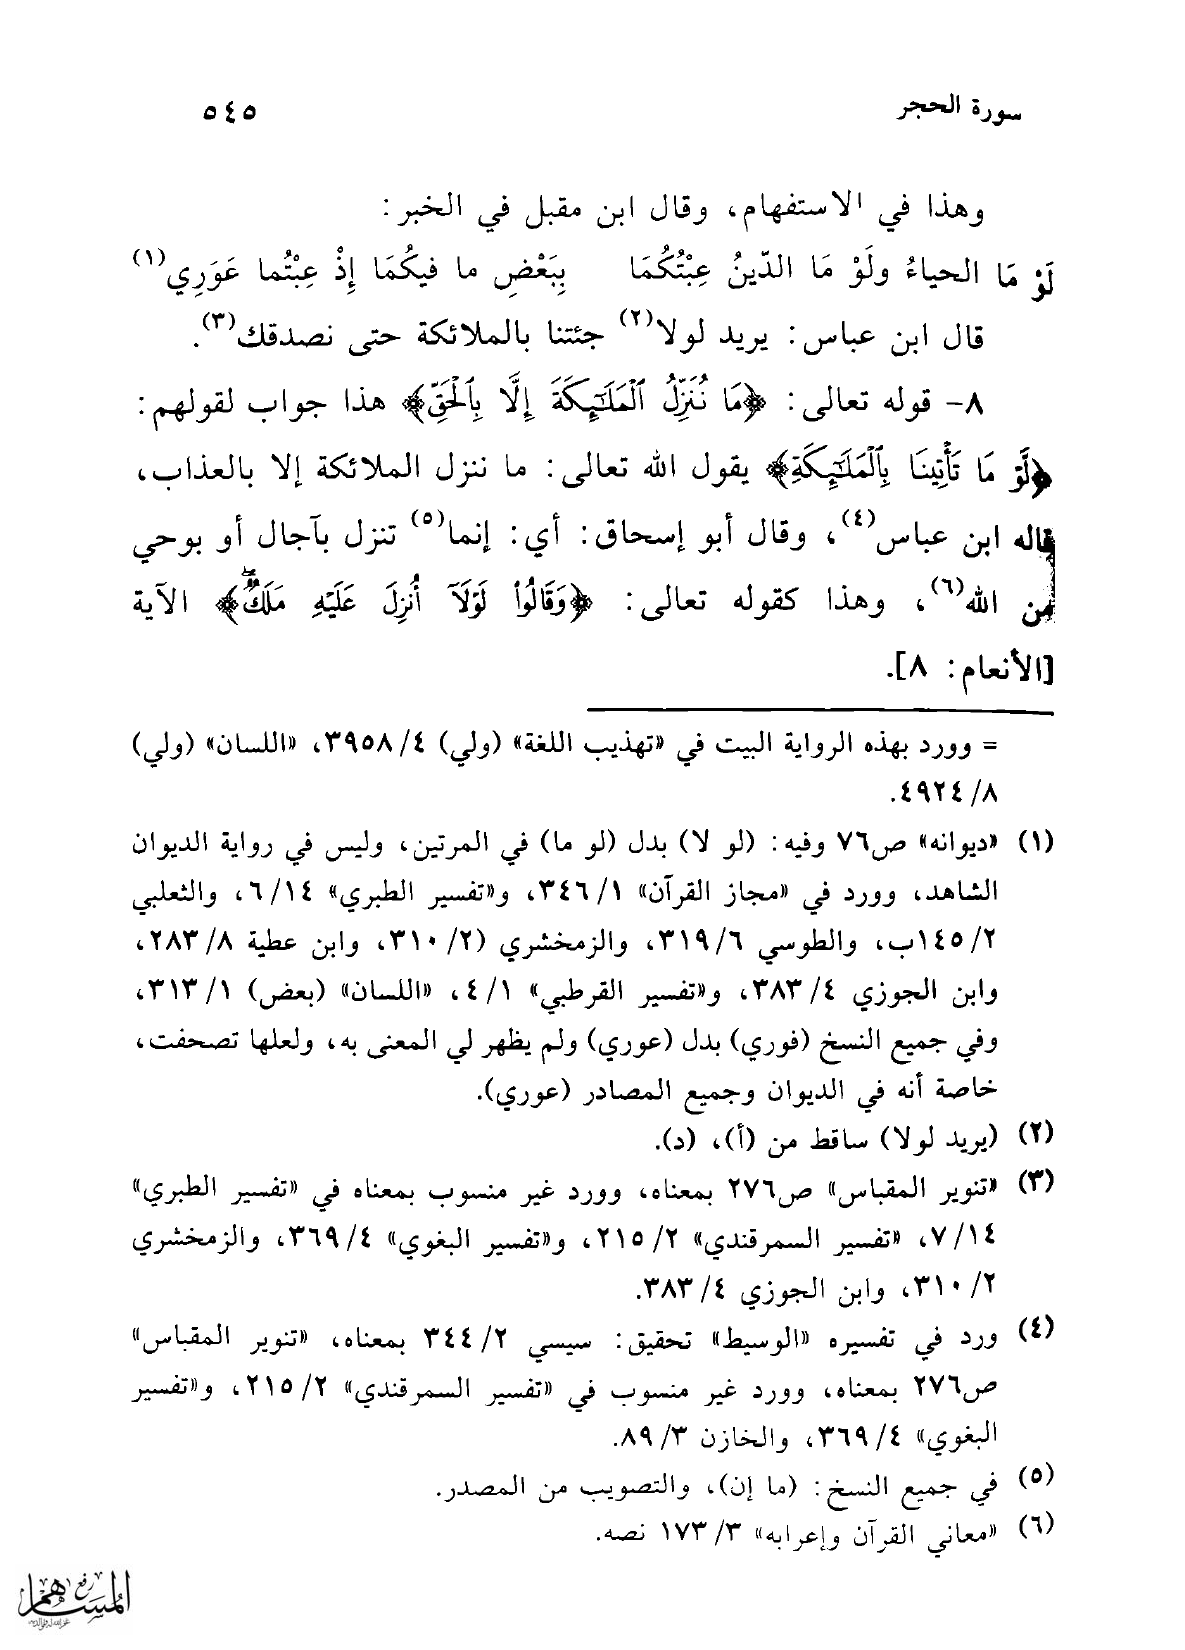 سورة الحجر
٥٤٥
وهذا في الاستفهام، وقال ابن مقبل في الخبر:
لَوْ مَا الحياءُ ولَوْ مَا الدّينُ عِبْتُكُمَا بِبَعْضِ ما فيكُمَا إذْ عِبْتُما عَوَرِي(١)
قال ابن عباس: يريد لولا(٢) جئتنا بالملائكة حتى نصدقك(٣).
٨- قوله تعالى: ﴿مَا نُنَزِّلُ ٱلْمَلَٰٓئِكَةَ إِلَّا بِٱلْحَقِّ﴾ هذا جواب لقولهم:
﴿لَّوْ مَا تَأْتِينَا بِٱلْمَلَٰٓئِكَةِ﴾ يقول الله تعالى: ما ننزل الملائكة إلا بالعذاب،
قاله ابن عباس(٤)، وقال أبو إسحاق: أي: إنما(٥) تنزل بآجال أو بوحي
من الله(٦)، وهذا كقوله تعالى: ﴿وَقَالُوا۟ لَوْلَآ أُنزِلَ عَلَيْهِ مَلَكٌۖ﴾ الآية
[الأنعام: ٨].
= وورد بهذه الرواية البيت في «تهذيب اللغة» (ولي) ٤/ ٣٩٥٨، «اللسان» (ولي)
٨/ ٤٩٢٤.
(١) «ديوانه» ص٧٦ وفيه: (لو لا) بدل (لو ما) في المرتين، وليس في رواية الديوان
الشاهد، وورد في «مجاز القرآن» ١/ ٣٤٦، و«تفسير الطبري» ١٤/ ٦، والثعلبي
٢/ ١٤٥ب، والطوسي ٦/ ٣١٩، والزمخشري (٢/ ٣١٠، وابن عطية ٨/ ٢٨٣،
وابن الجوزي ٤/ ٣٨٣، و«تفسير القرطبي» ١/ ٤، «اللسان» (بعض) ١/ ٣١٣،
وفي جميع النسخ (فوري) بدل (عوري) ولم يظهر لي المعنى به، ولعلها تصحفت،
خاصة أنه في الديوان وجميع المصادر (عوري).
(٢) (يريد لولا) ساقط من (أ)، (د).
(٣) «تنوير المقباس» ص٢٧٦ بمعناه، وورد غير منسوب بمعناه في «تفسير الطبري»
١٤/ ٧، «تفسير السمرقندي» ٢/ ٢١٥، و«تفسير البغوي» ٤/ ٣٦٩، والزمخشري
٢/ ٣١٠، وابن الجوزي ٤/ ٣٨٣.
(٤) ورد في تفسيره «الوسيط» تحقيق: سيسي ٢/ ٣٤٤ بمعناه، «تنوير المقباس»
ص٢٧٦ بمعناه، وورد غير منسوب في «تفسير السمرقندي» ٢/ ٢١٥، و«تفسير
البغوي» ٤/ ٣٦٩، والخازن ٣/ ٨٩.
(٥) في جميع النسخ: (ما إن)، والتصويب من المصدر.
(٦) «معاني القرآن وإعرابه» ٣/ ١٧٣ نصه.